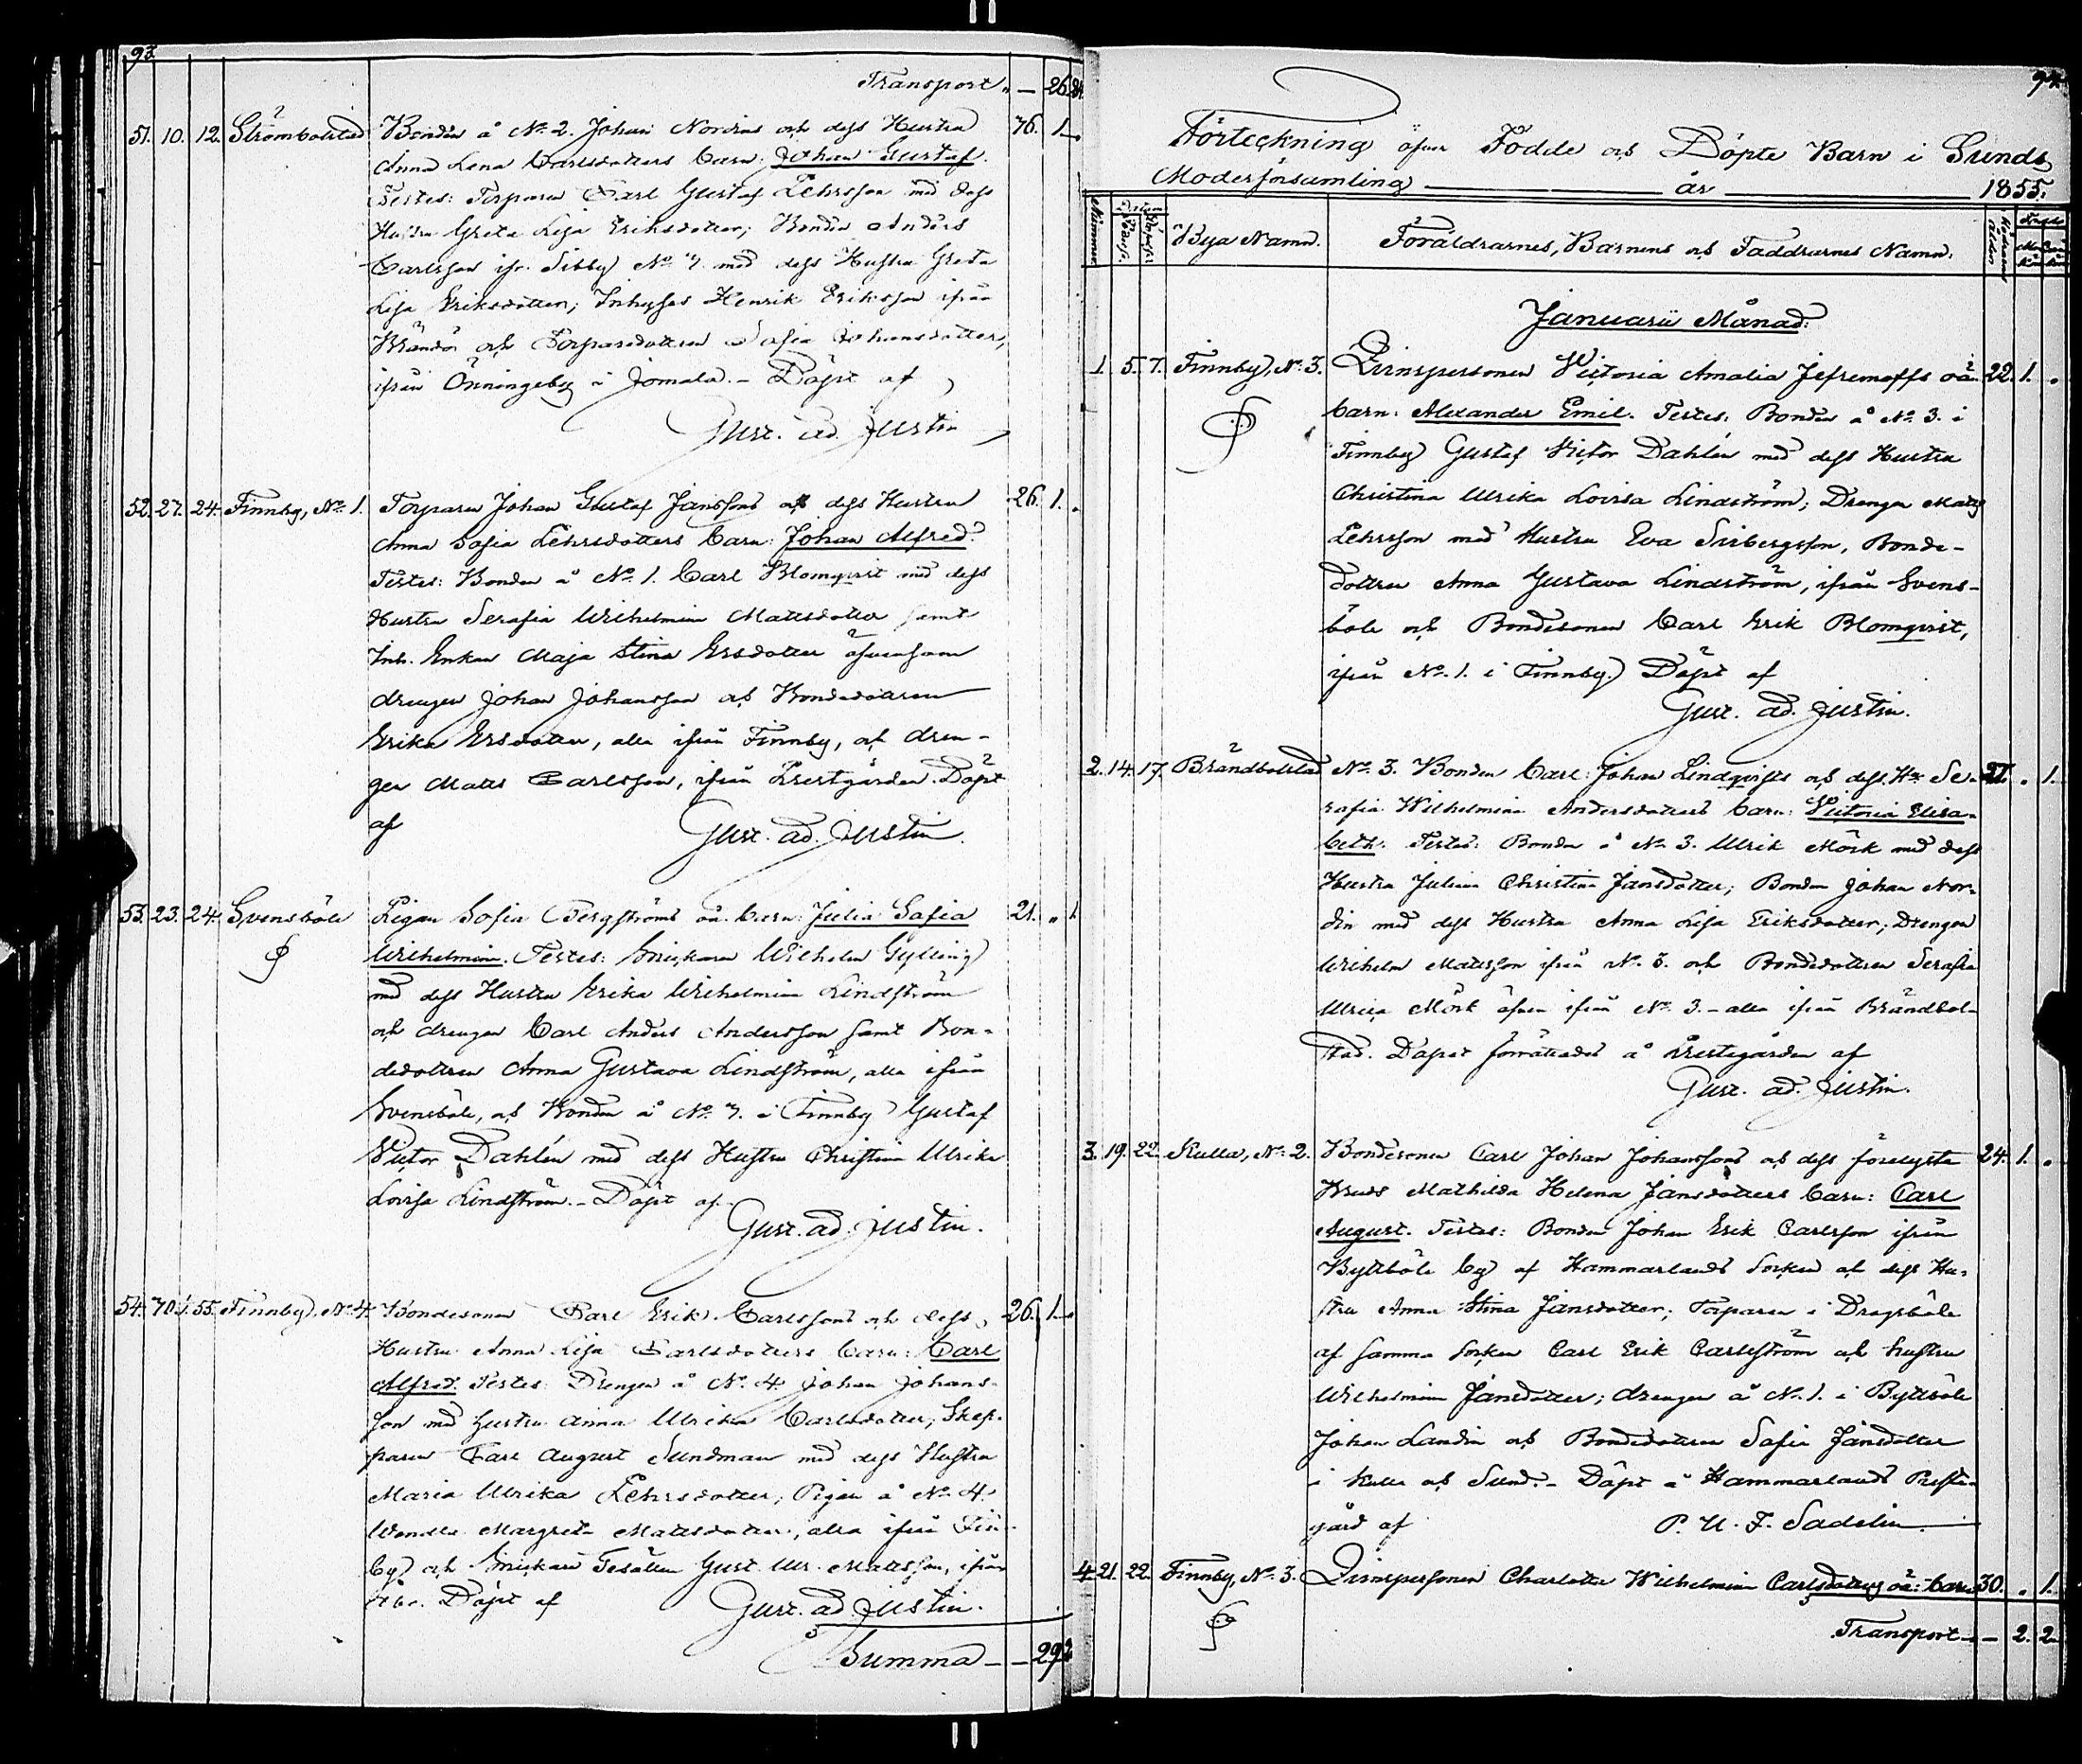 93.
Transport „ — 26.
51. 10. 12. Strömbolstad Bonden å No 2. Johan Nordins och dess Hustru 1.
Anna Lena Carlsdotters barn: Johan Gustaf.
Testes: Torparen Carl Gustaf Pehrsson med dess
Hustru Greta Lisa Eriksdotter; Bonden Anders
Carlsson ifr. Sibby No 7. med dess Hustru Greta
Lisa Eriksdotter; Inhyses Henrik Eriksson ifrån
Brändö och Torparedottren Sofia Johansdotter,
ifrån Önningeby i Jomala. – Döpt af
Gust. ad. Justin
52. 27. 24. Finnby, No 1. Torparen Johan Gustaf Janssons och dess Hustru 26. 1. „
Anna Sofia Pehrsdotters barn: Johan Alfred.
Testes: Bonden å No 1. Carl Blomqvist med dess
Hustru Serafia Wilhelmina Mattsdotter samt
Inh. Enkan Maja Stina Ersdotter äfvensom
drengen Johan Johansson och Bonde
Erika Ersdotter, alla ifrån Finnby, och dren-
gen Matts Carlsson, ifrån Prestgården. Döpt
af Gust. ad. Justin.
53. 23. 24. Svensböle Pigan Sofia Bergströms oä. barn: Julia Sofia 21. „ 1.
Wilhelmina. Testes: Snickaren Wilhelm Gylling
med dess Hustru Erika Wilhelmina Lindström
och drengen Carl Anders Andersson samt Bon-
dedottren Anna Gustava Lindström, alla ifrån
Svensböle, och Bonden å No 7. i Finnby Gustaf
Victor Dahlén med dess Hustru Christina Ulrika
Lovisa Lindström. – Döpt af
Gust. ad. Justin.
54. 55. Finnby, No 4. Bondesonen Carl Erik Carlssons och dess 26. 1. „
Hustru Anna Lisa Carlsdotters barn: Carl
Alfred. Testes: Drengen å No 4. Johan Johans-
son med hustru Anna Ulrika Carlsdotter; Skep-
paren Carl August Sundman med dess Hustru
Maria Ulrika Pehrsdotter; Pigan å No 4.
Wendla Margreta Mattsdotter, alla ifrån Fin-
by och Snickare Gesällen Gust. Ulr. Mattsson, ifrån
Döpt af Gust. ad. Justin.
Summa — — 29.
94.
Förteckning öfver Födde och Döpte Barn i Sunds
Moderförsamling år 1855.
Nummer Datum Bya Namn. Föräldrarnes, Barnens och Faddrarnes Namn.
Januarii Månad:
1. 5. 7. Finnby, No 3. Qvinspersonen Victoria Amalia Jefremoffs oä 22. 1. „
barn: Alexander Emil. Testes: Bonden å No 3. i
Finnby Gustaf Victor Dahlén med dess Hustru
Christina Ulrika Lovisa Lindström; Drengen Matts
Pehrsson med Hustru Eva Sirbergsson, Bonde-
dottren Anna Gustava Lindström, ifrån Svens-
böle och Bondesonen Carl Erik Blomqvist,
ifrån No 1. i Finnby. Döpt af
Gust. ad. Justin.
2. 14. 17. Brändbolstad No 3. Bonden Carl Johan Lindqvists och dess Hu Se- 27. „ 1.
rafia Wilhelmina Andersdotters barn: Victoria Elisa-
beth. Testes: Bonden å No 3. Ulrik Mörk med dess
Hustru Julina Christina Jansdotter; Bonden Johan Nor-
din med dess Hustru Anna Lisa Eriksdotter; Drengen
Wilhelm Mattsson ifrån No 3. och Bondedottren Serafia
Ulrica Mörk äfven ifrån No 3. – alla ifrån Brändbol-
stad. Döpet förrättades å Prestegården af
Gust. ad. Justin.
3. 19. 22. Kulla, No 2. Bondesonen Carl Johan Johanssons och dess förelofste 24. 1. „
Bruds Mathilda Helena Jansdotters barn: Carl
August. Testes: Bonden Johan Erik Carlsson ifrån
Byttböle by af Hammarlands Socken och dess Hu-
stru Anna Stina Jansdotter; Torparen i Drogsböle
af samma Socken Carl Erik Carlström och hustru
Wilhelmina Jansdotter; drengen å No 1. i Byttböle
Johan Landin och Bondedottren Sofia Jansdotter
i Kulla och Sund. – Döpt å Hammarlands Preste-
gård af P. U. F. Sadelin.
4. 21. 22. Finnby, No 3. Qvinspersonen Charlotta Wilhelmina Carlsdotters oä: barn 30. „ 1.
Transport — — 2. 2.